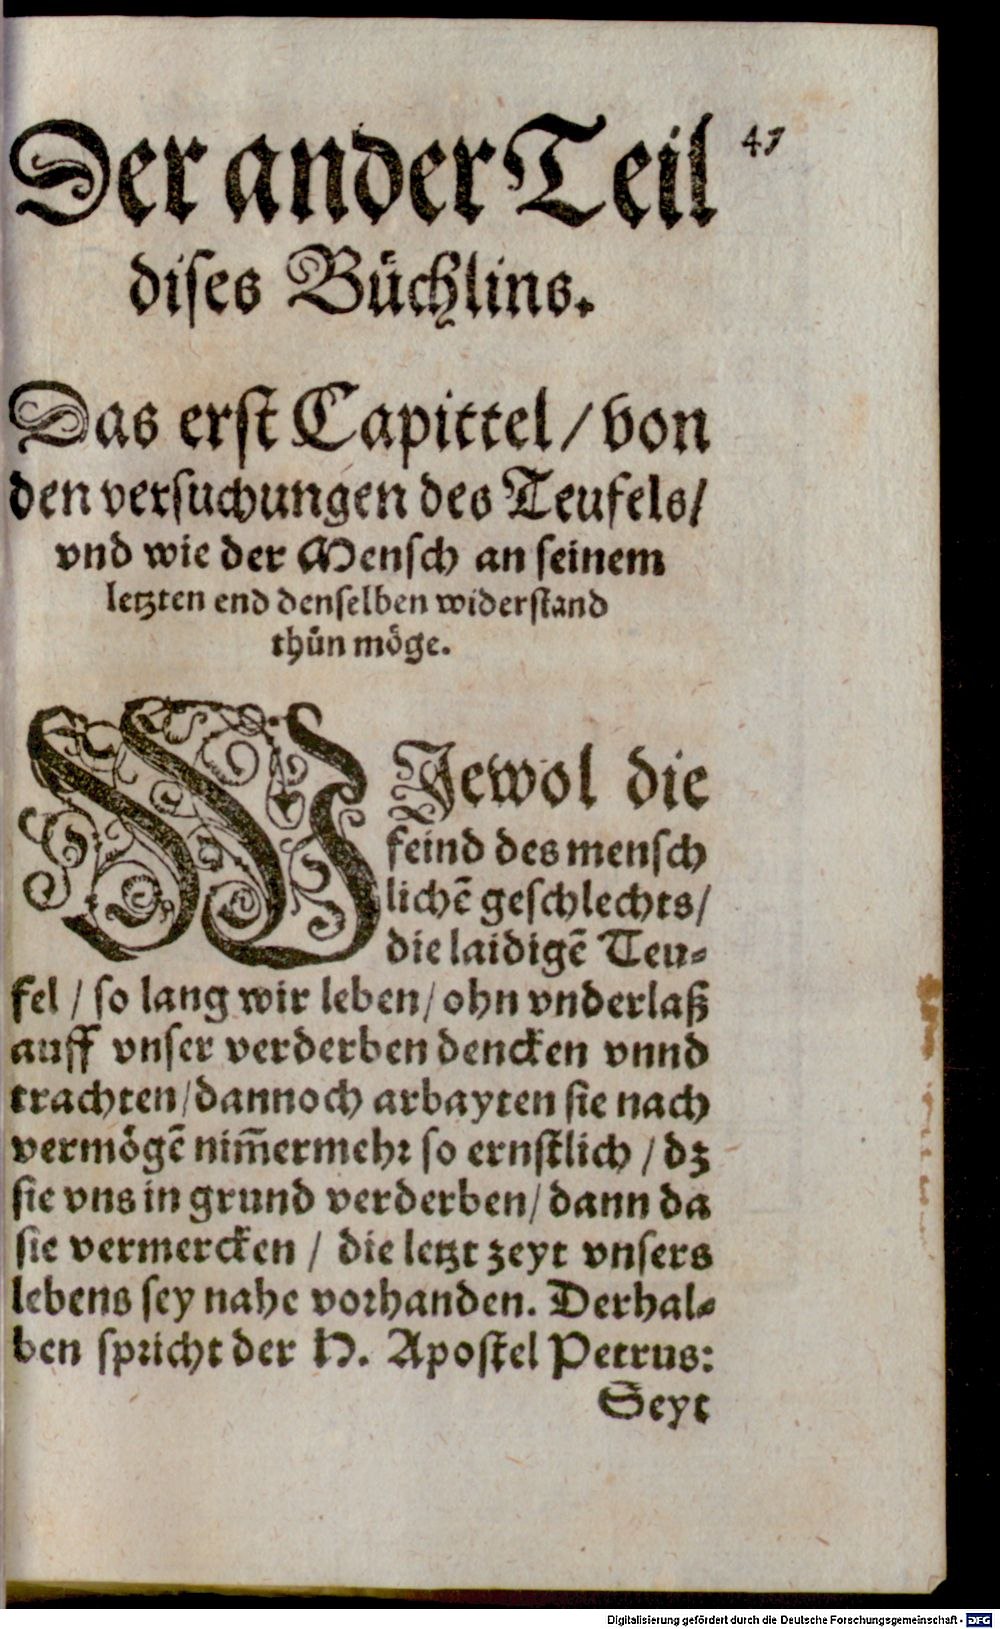 Der ander Teil
47
dises Büchlins.
Das erst Capittel / von
den versuchungen des Teufels /
vnd wie der Mensch an seinem
letzten end denselben widerstand
thün möge.
WJewol die
feind des mensch
lichẽ geschlechts /
die laidigẽ Teu⸗
fel / so lang wir leben / ohn vnderlaß
auff vnser verderben dencken vnnd
trachten / dannoch arbayten sie nach
vermögẽ nim̃ermehr so ernstlich / dz
sie vns in grund verderben / dann da
sie vermercken / die letzt zeyt vnsers
lebens sey nahe vorhanden. Derhal⸗
ben spricht der H. Apostel Petrus:
Seyt
Digitalisierung gefördert durch die Deutsche Forschungsgemeinschaft - DFG